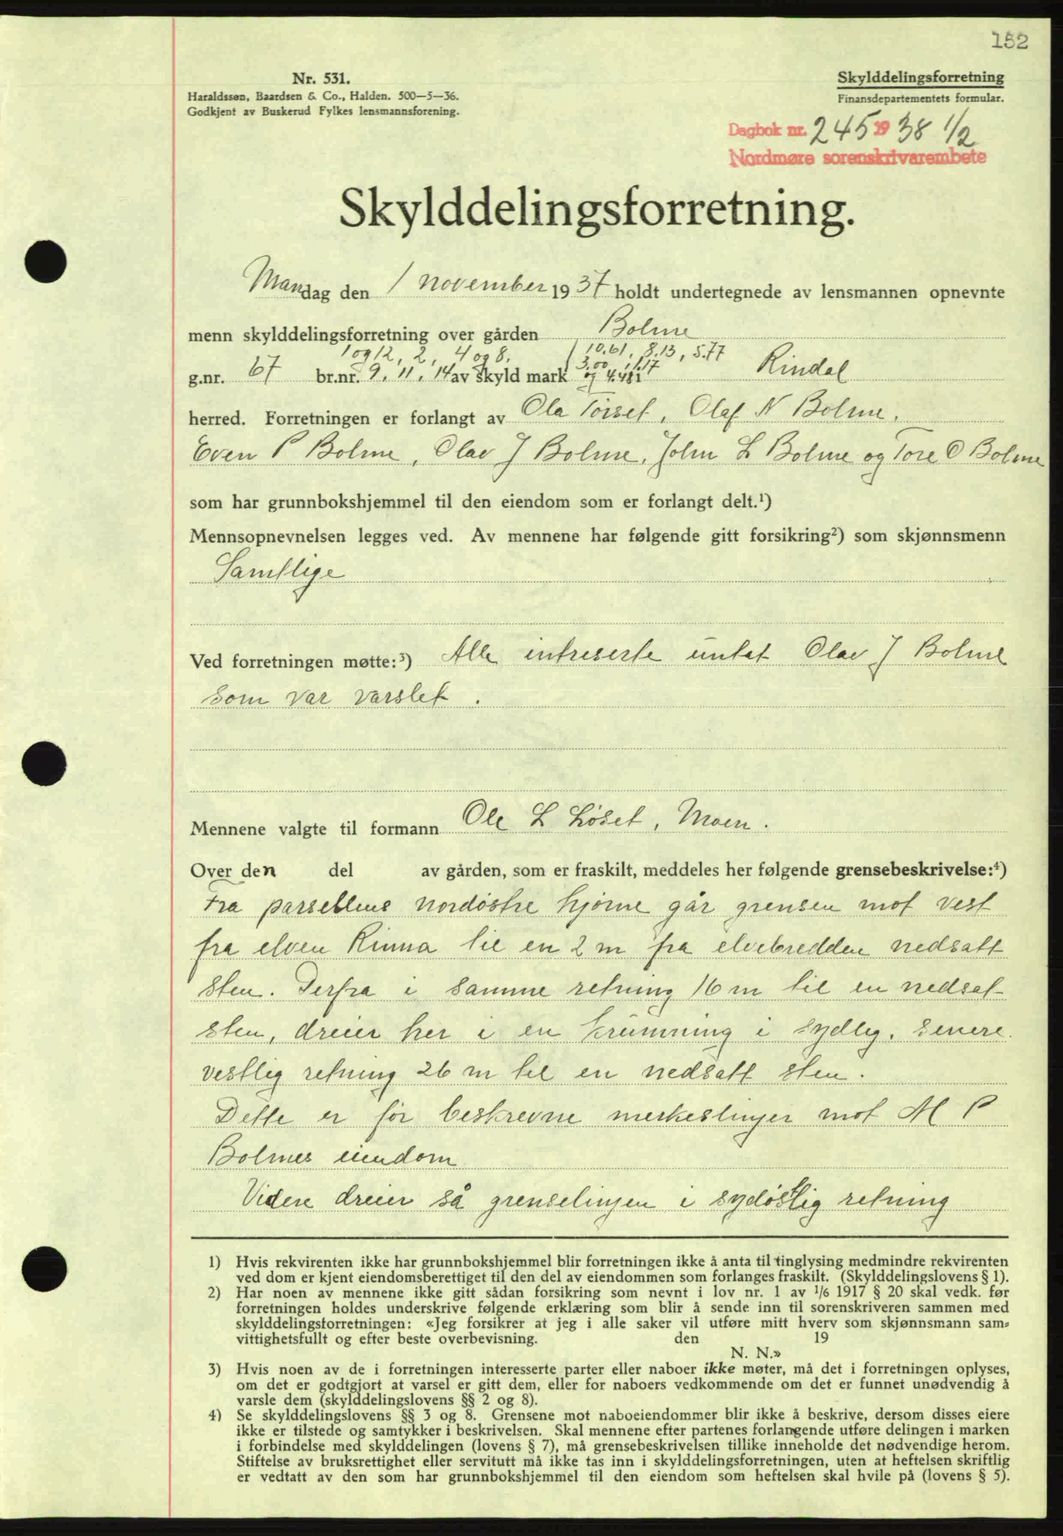 152
Nr. 531.
Haraldssøn, Baardsen & Co., Halden. 500—5—36.
Godkjent av Buskerud Fylkes lensmannsforening.
Skylddelingsforretning
Finansdepartementets formular.
Dagbok nr. 245 1938 1/2
Nordmøre sorenskrivarembete
Skylddelingsforretning.
Mandag den 1 november 1937 holdt undertegnede av lensmannen opnevnte
menn skylddelingsforretning over gården Bolme
1 og 12, 2, 4 og 8. 10.61, 8.13, 5.77
g.nr. 67 br.nr. 9, 11, 14 av skyld mark 3.00, 11.17 og 4.48 i Rindal
herred. Forretningen er forlangt av Ola Tørset, Olaf N Bolme,
Even P Bolme, Olav J Bolme, John L Bolme og Tore O Bolme
som har grunnbokshjemmel til den eiendom som er forlangt delt.¹)
Mennsopnevnelsen legges ved. Av mennene har følgende gitt forsikring²) som skjønnsmenn
Samtlige
Ved forretningen møtte:³) Alle intreserte untat Olav J Bolme
som var varslet.
Mennene valgte til formann Ole L Løset, Moen.
Over den del av gården, som er fraskilt, meddeles her følgende grensebeskrivelse:⁴)
Fra parsellens nordøstre hjørne går grensen mot vest
fra elven Rinna til en 2 m fra elvebredden nedsatt
sten. Derfra i samme retning 16 m til en nedsat
sten, dreier her i en krumning i sydlig, senere
vestlig retning 26 m til en nedsatt sten.
Dette er før beskrevne merkeslinjer mot M P
Bolmes eiendom
Videre dreier så grenselinjen i sydøstlig retning
1) Hvis rekvirenten ikke har grunnbokshjemmel blir forretningen ikke å anta til tinglysing medmindre rekvirenten
ved dom er kjent eiendomsberettiget til den del av eiendommen som forlanges fraskilt. (Skylddelingslovens § 1).
2) Har noen av mennene ikke gitt sådan forsikring som nevnt i lov nr. 1 av 1/6 1917 § 20 skal vedk. før
forretningen holdes underskrive følgende erklæring som blir å sende inn til sorenskriveren sammen med
skylddelingsforretningen: «Jeg forsikrer at jeg i alle saker vil utføre mitt hverv som skjønnsmann sam-
vittighetsfullt og efter beste overbevisning. den 19
N. N.»
3) Hvis noen av de i forretningen interesserte parter eller naboer ikke møter, må det i forretningen oplyses,
om det er godtgjort at varsel er gitt dem, eller for naboers vedkommende om det er funnet unødvendig å
varsle dem (skylddelingslovens §§ 2 og 8).
4) Se skylddelingslovens §§ 3 og 8. Grensene mot naboeiendommer blir ikke å beskrive, dersom disses eiere
ikke er tilstede og samtykker i beskrivelsen. Skal mennene efter partenes forlangende utføre delingen i marken
i forbindelse med skylddelingen (lovens § 7), må grensebeskrivelsen tillike inneholde det nødvendige herom.
Stiftelse av bruksrettighet eller servitutt må ikke tas inn i skylddelingsforretningen, uten at heftelsen skriftlig
er vedtatt av den som har grunnbokshjemmel til den eiendom som heftelsen skal hvile på (lovens § 5).